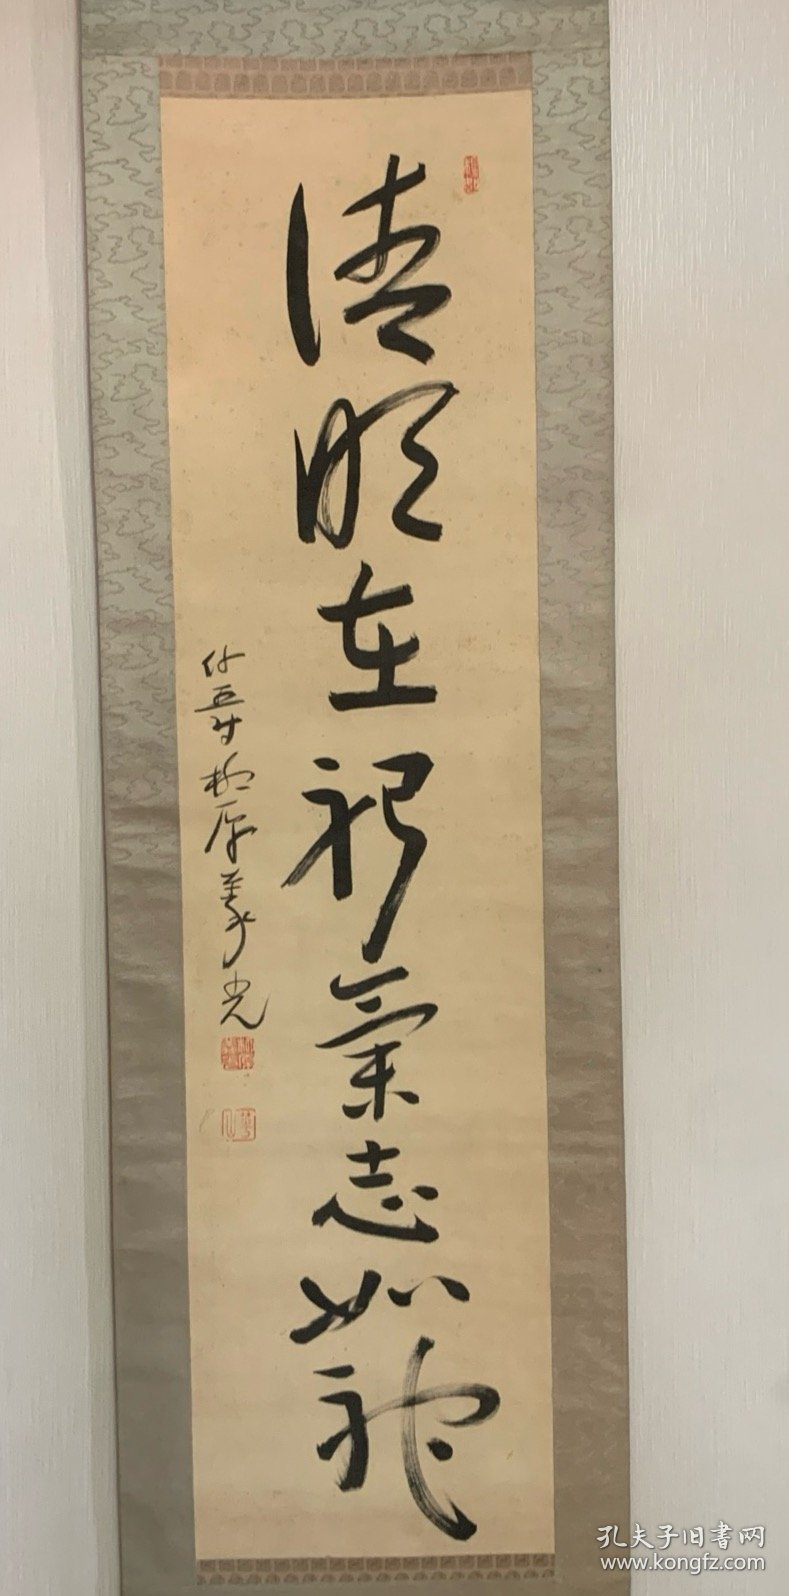 清明在躬氣志如神
從五位柳原義光
孔夫子旧书网
www.kongfz.com